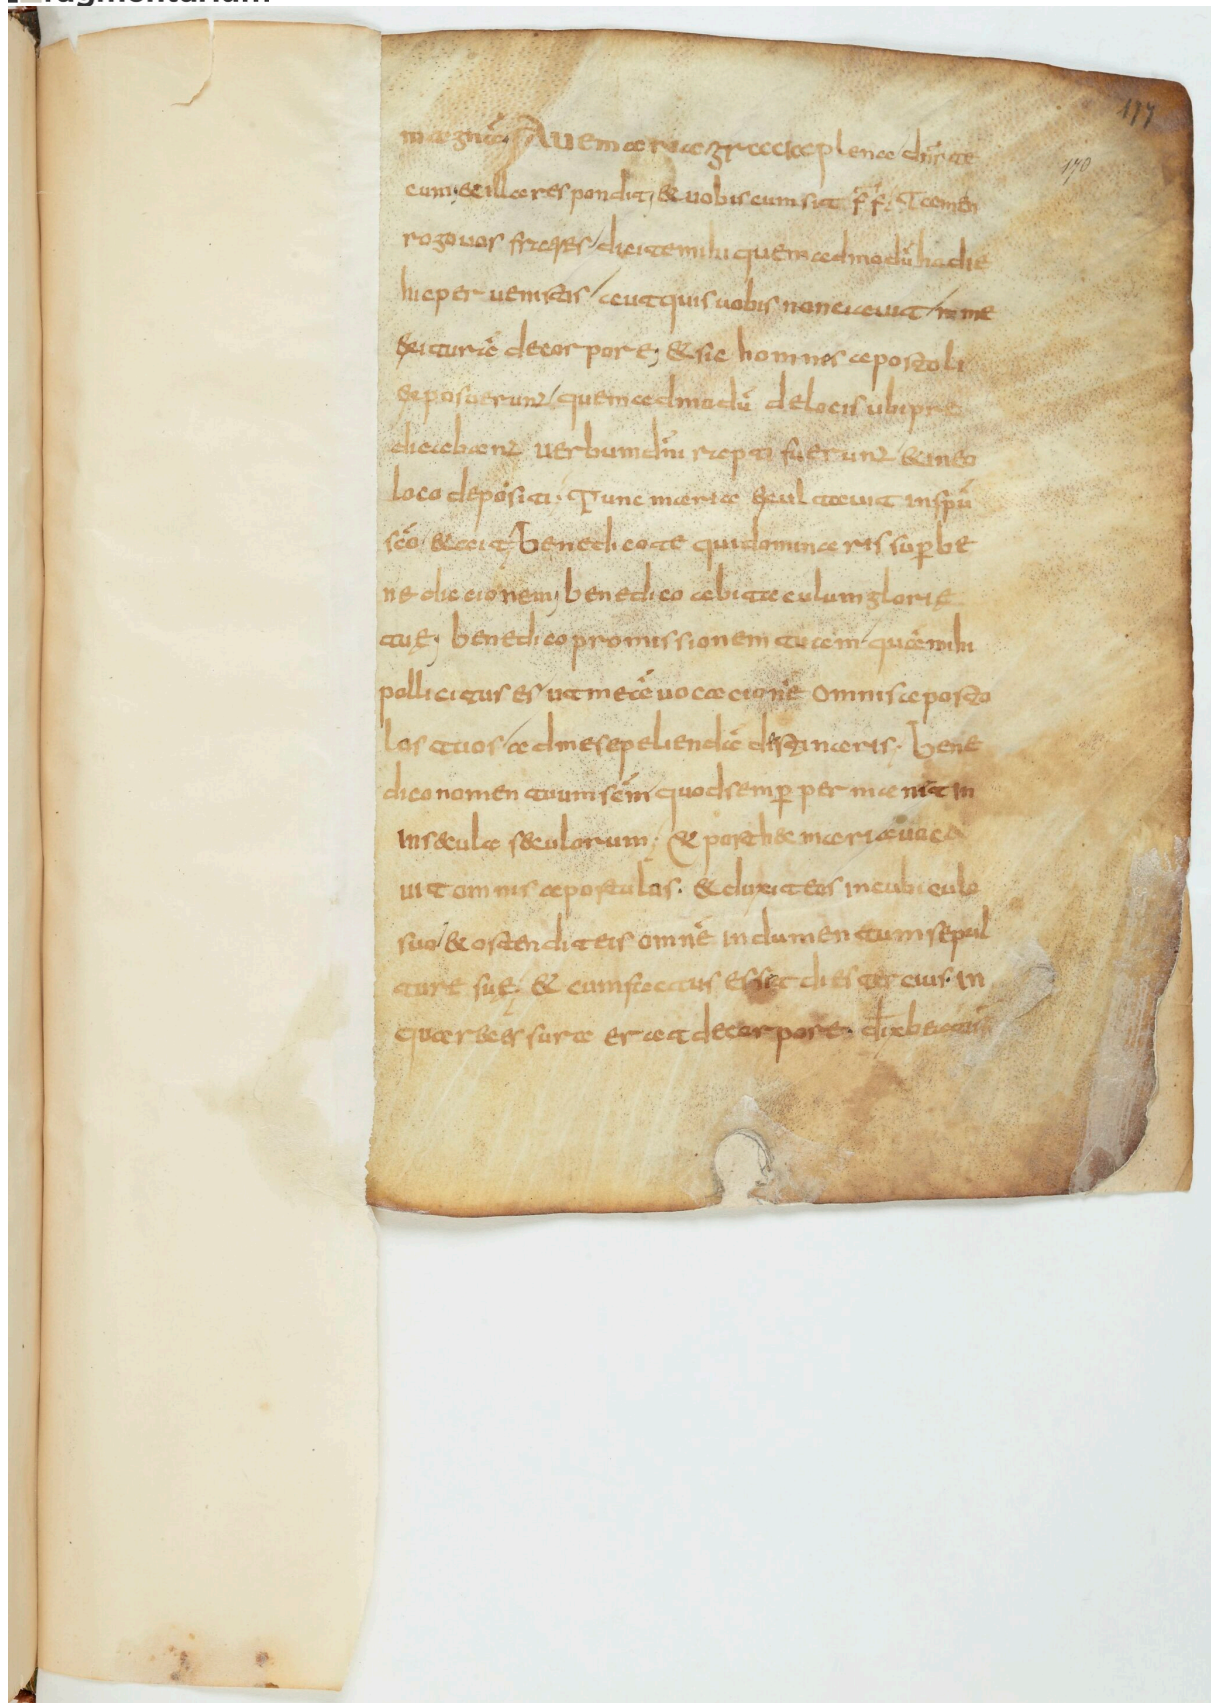 117
170
magnā. Aue maria gracia plena dn̄s te
cum; & illa respondit; & uobiscum sit f̄ f̄; Tamen
rogo uos fratres / dicite mihi quem admodū hodie
huc peruenistis / aut quis uobis nunciauit / me
exiturā de corpore; & sic homnes apostoli
exposuerunt / quem admodū de locis ubi pre
dicabant uerbum dn̄i rapti fuerunt & in eo
loco depositi. Tunc maria exultauit in spū
scō. & ait; Benedico te qui dominaris sup̄ be
nedicionem; benedico abitaculum glorie
tuę; benedico promissionem tuam quā mihi
pollicitus es / ut me ā uocacionē omnis aposto
los tuos / ad me sepeliendā distinaris. Bene
dico nomen tuum sc̄m quod semp̄ permanit in
in sęcula sęculorum; & post hęc maria uoca
uit omnis apostulos. & duxit eos in cubiculo
suo / & ostendit eis omnē indumentum sepul
turę suę; & cum factus esset dies tercius. in
quar& essura erat de corpore. dix beatus